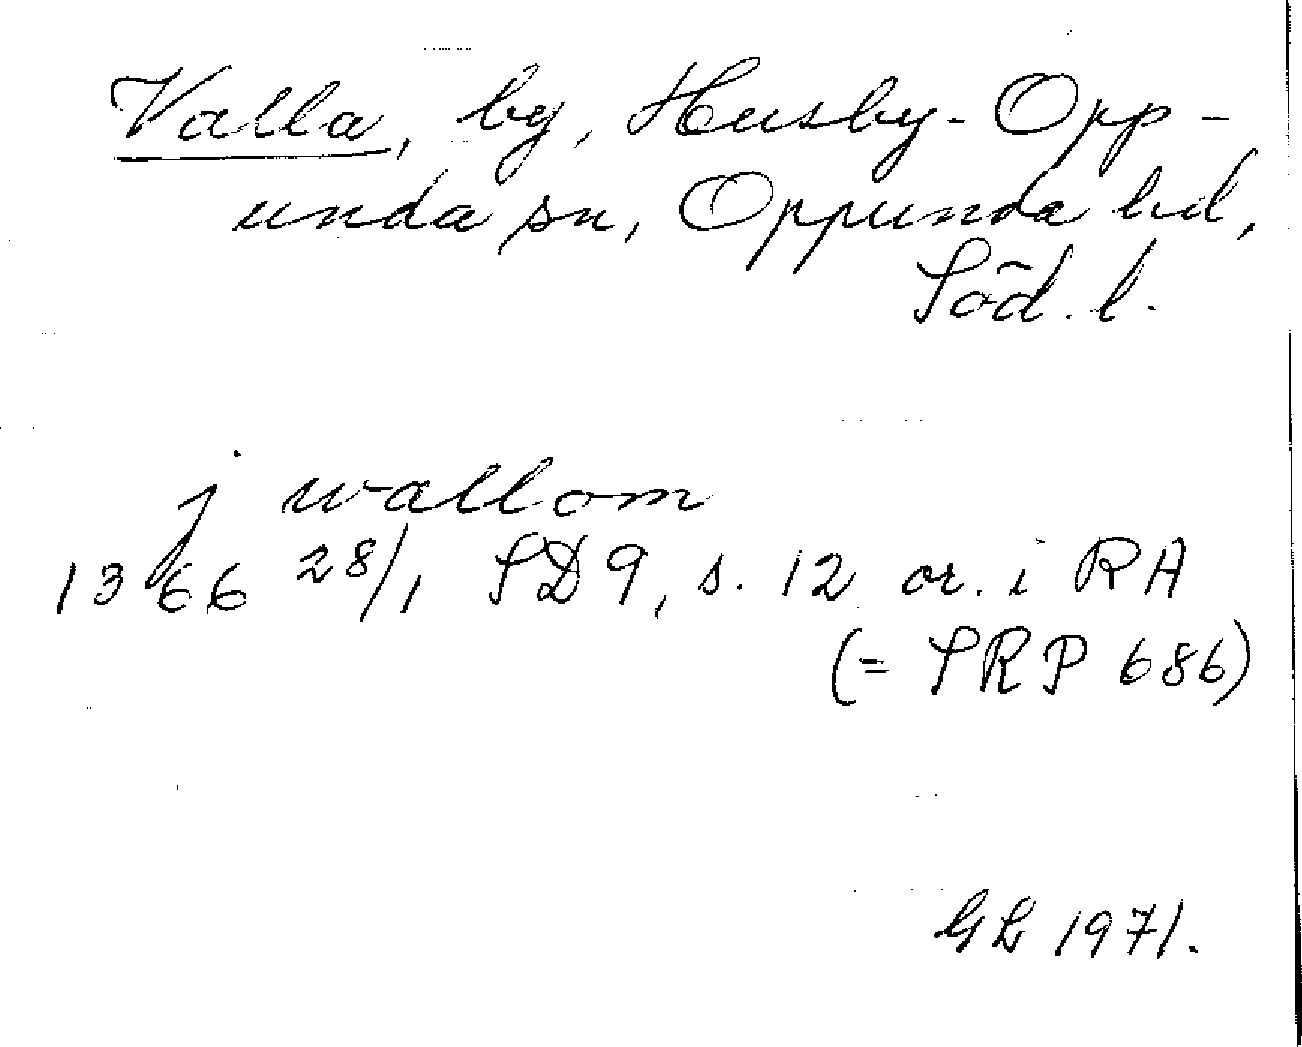 Valla, by, Husby-Opp-
unda sn, Oppunda hd,
Söd. l.
j wallom
1366 28/1 SD 9, s. 12 or. i RA
(= SRP 686)
GL 1971.